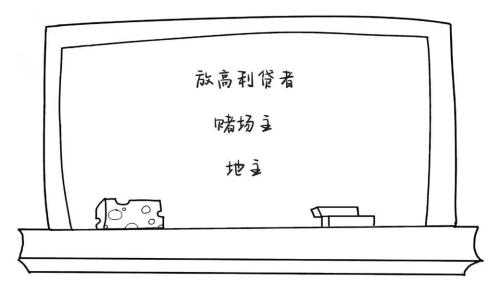 放高利贷者
赌场主
地主